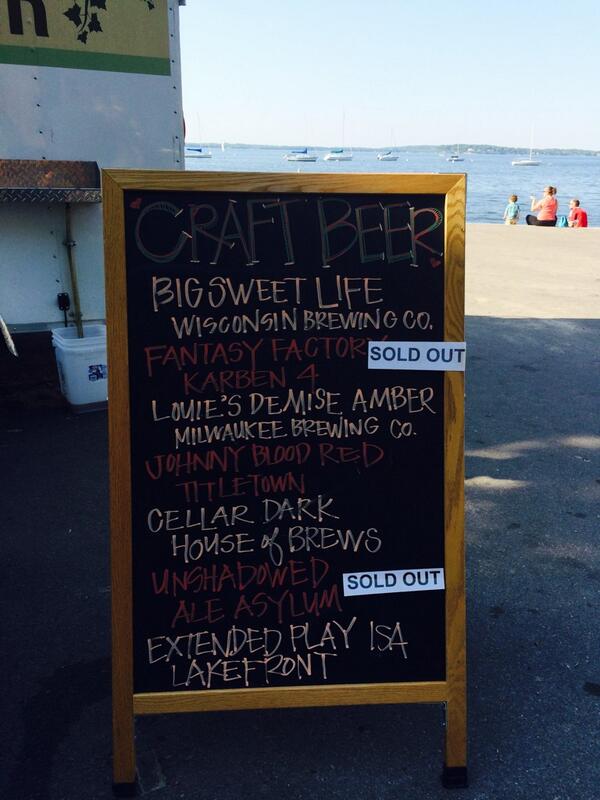 CRAFT BEER
BIG SWEET LIFE
WISCONSIN BREWING CO.
FANTASY FACTORY SOLD OUT
KARBEN 4
LOUIE'S DEMISE AMBER
MILWAUKEE BREWING CO.
JOHNNY BLOOD RED
TITLETOWN
CELLAR DARK
HOUSE of BREWS
UNSHADOWED SOLD OUT
ALE ASYLUM
EXTENDED PLAY ISA
LAKEFRONT